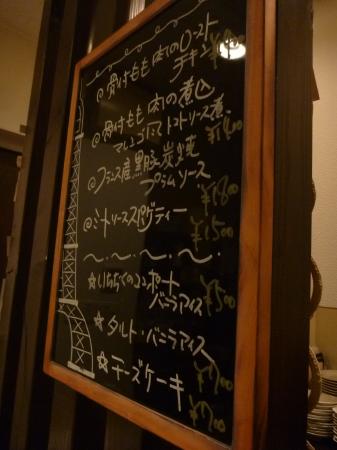 @骨付もも肉のロースト
チキン
@骨付もも肉の煮込
マレンゴ トマトソース煮
¥1400
@フランス産黒豚炭焼
プラムソース
¥1800
@ミートソーススパゲティー
¥1500
☆いちぢくのコンポート
バニラアイス
¥500
☆タルト・バニラアイス
¥700
☆チーズケーキ
¥700